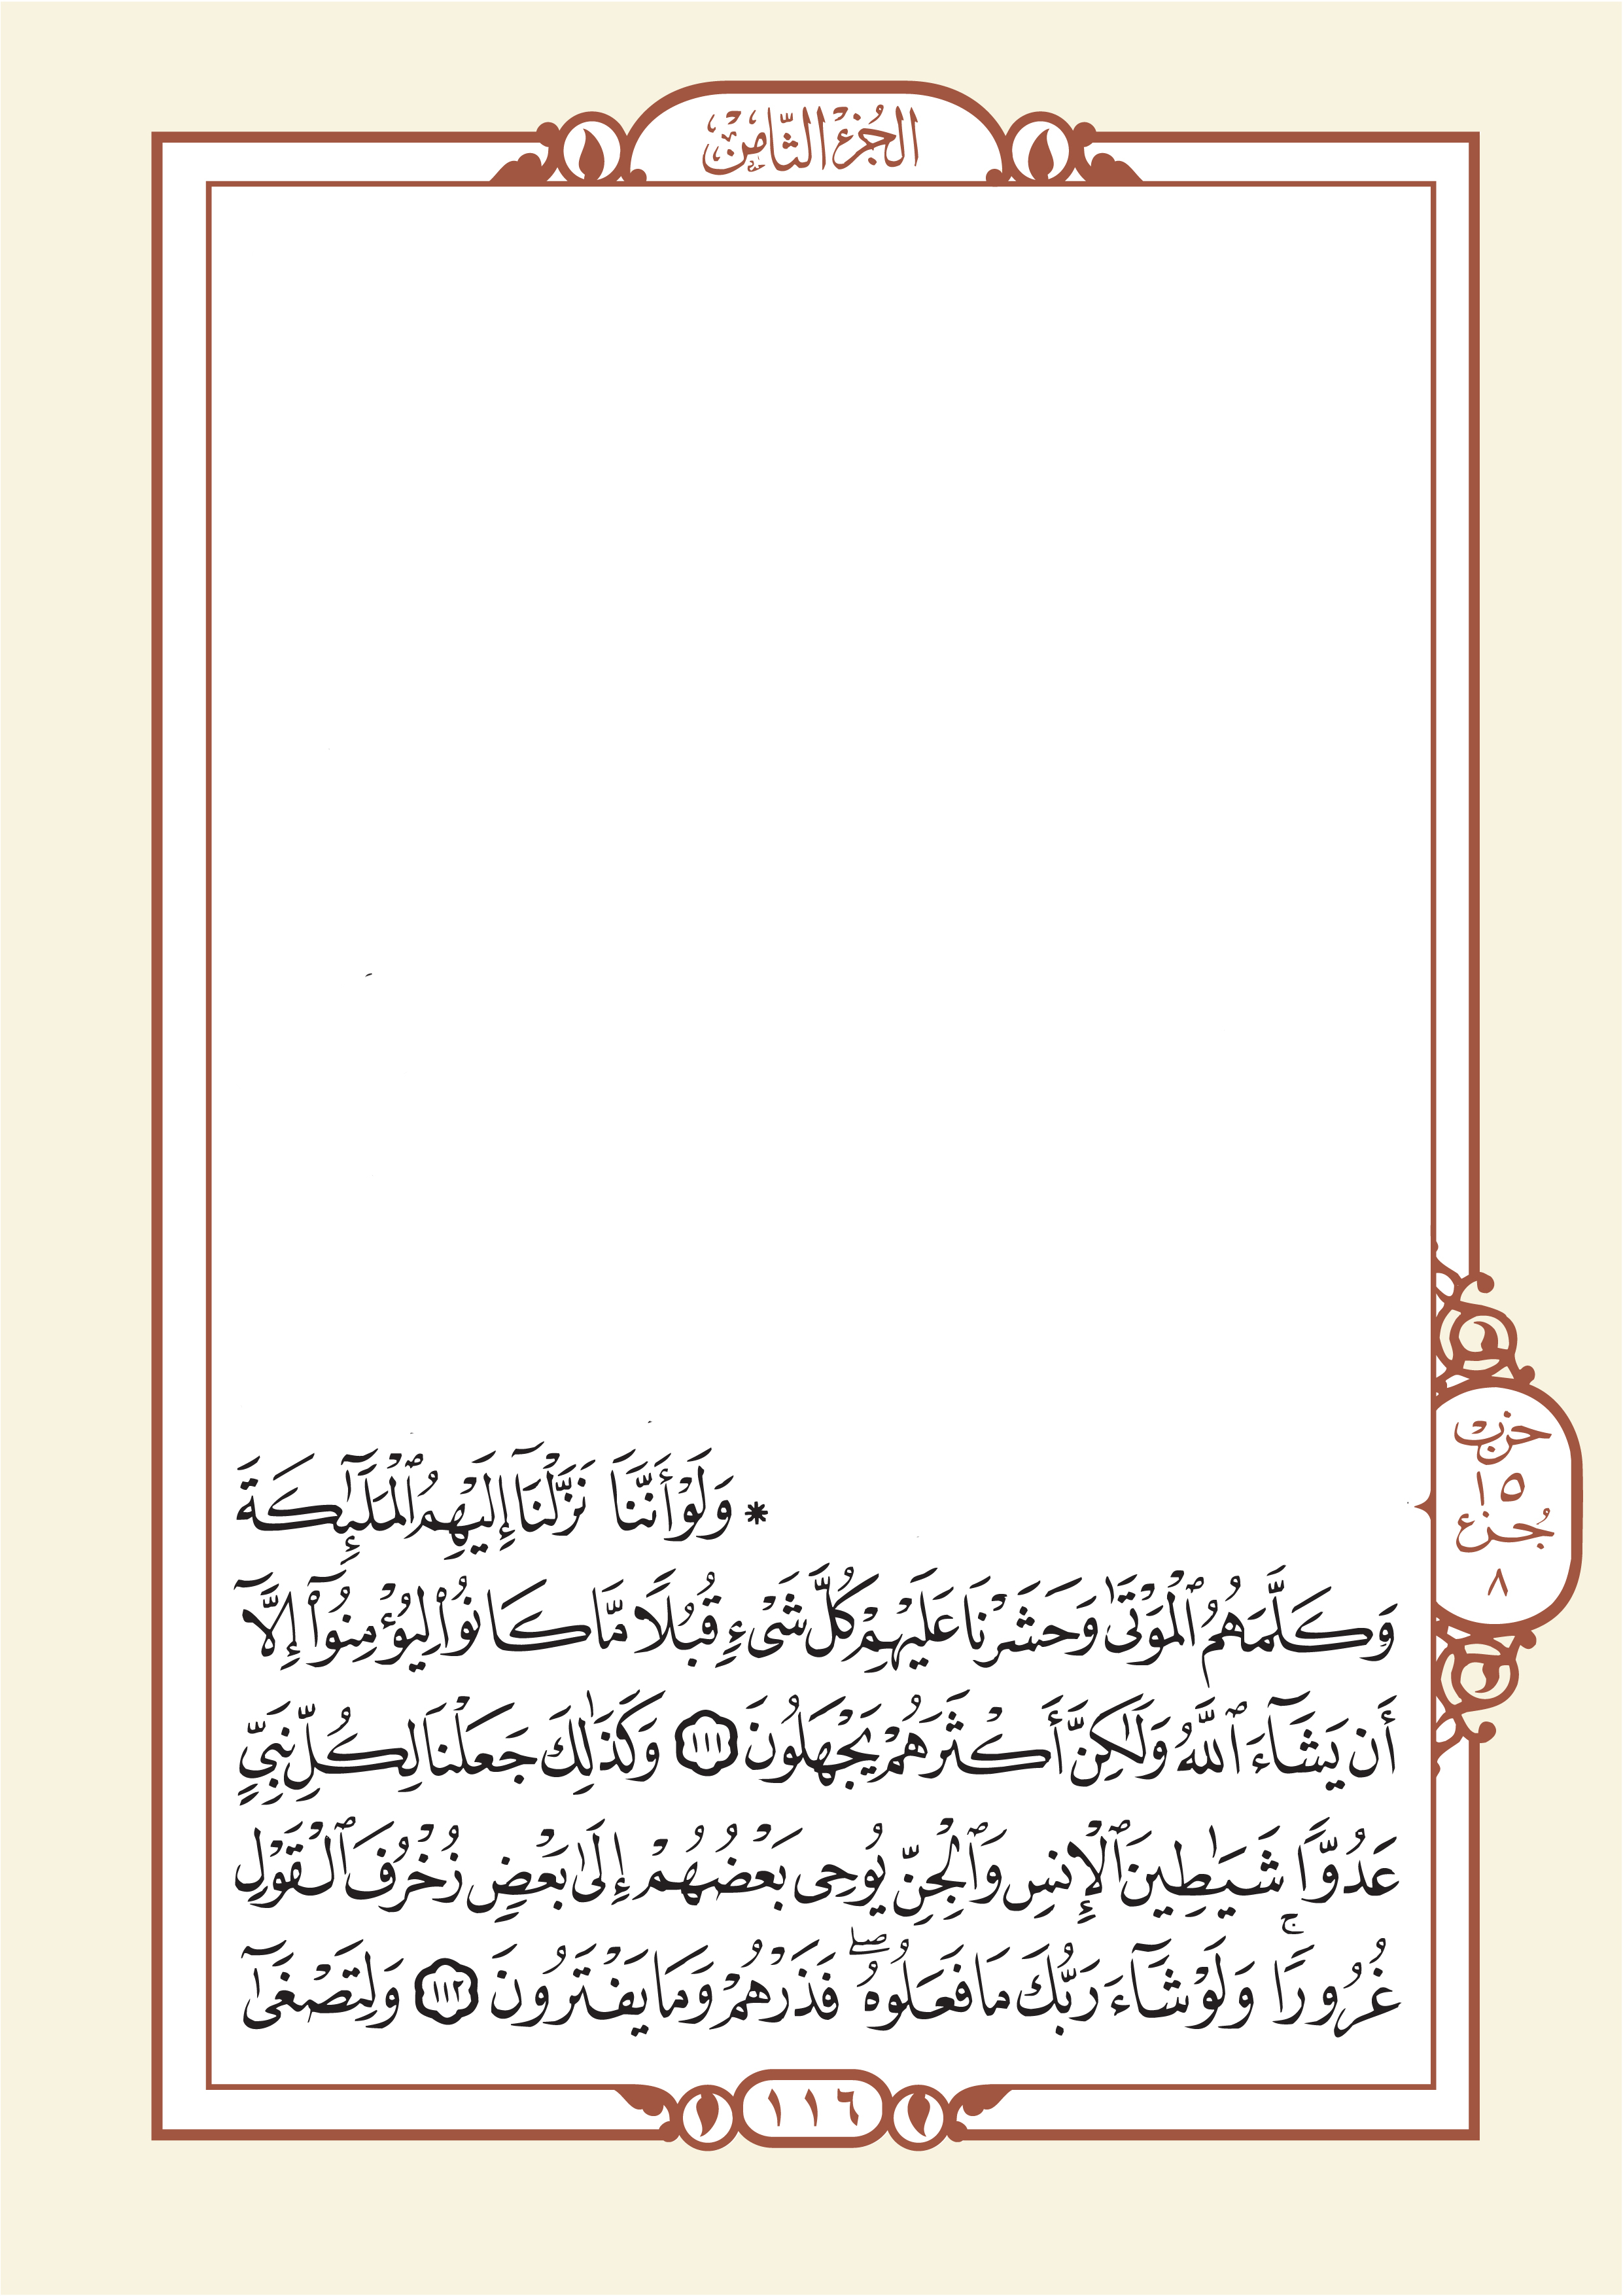 الجُزْءُ الثَّامِنُ
* وَلَوْ أَنَّنَا نَزَّلْنَآ إِلَيْهِمُ ٱلْمَلَٰٓئِكَةَ
وَكَلَّمَهُمُ ٱلْمَوْتَىٰ وَحَشَرْنَا عَلَيْهِمْ كُلَّ شَىْءٍ قُبُلًا مَّا كَانُوا۟ لِيُؤْمِنُوٓا۟ إِلَّآ
أَن يَشَآءَ ٱللَّهُ وَلَٰكِنَّ أَكْثَرَهُمْ يَجْهَلُونَ ١١١ وَكَذَٰلِكَ جَعَلْنَا لِكُلِّ نَبِىٍّ
عَدُوًّا شَيَٰطِينَ ٱلْإِنسِ وَٱلْجِنِّ يُوحِى بَعْضُهُمْ إِلَىٰ بَعْضٍ زُخْرُفَ ٱلْقَوْلِ
غُرُورًا ۚ وَلَوْ شَآءَ رَبُّكَ مَا فَعَلُوهُ ۖ فَذَرْهُمْ وَمَا يَفْتَرُونَ ١١٢ وَلِتَصْغَىٰٓ
حِزْب
١٥
جُزْء
٨
١١٦